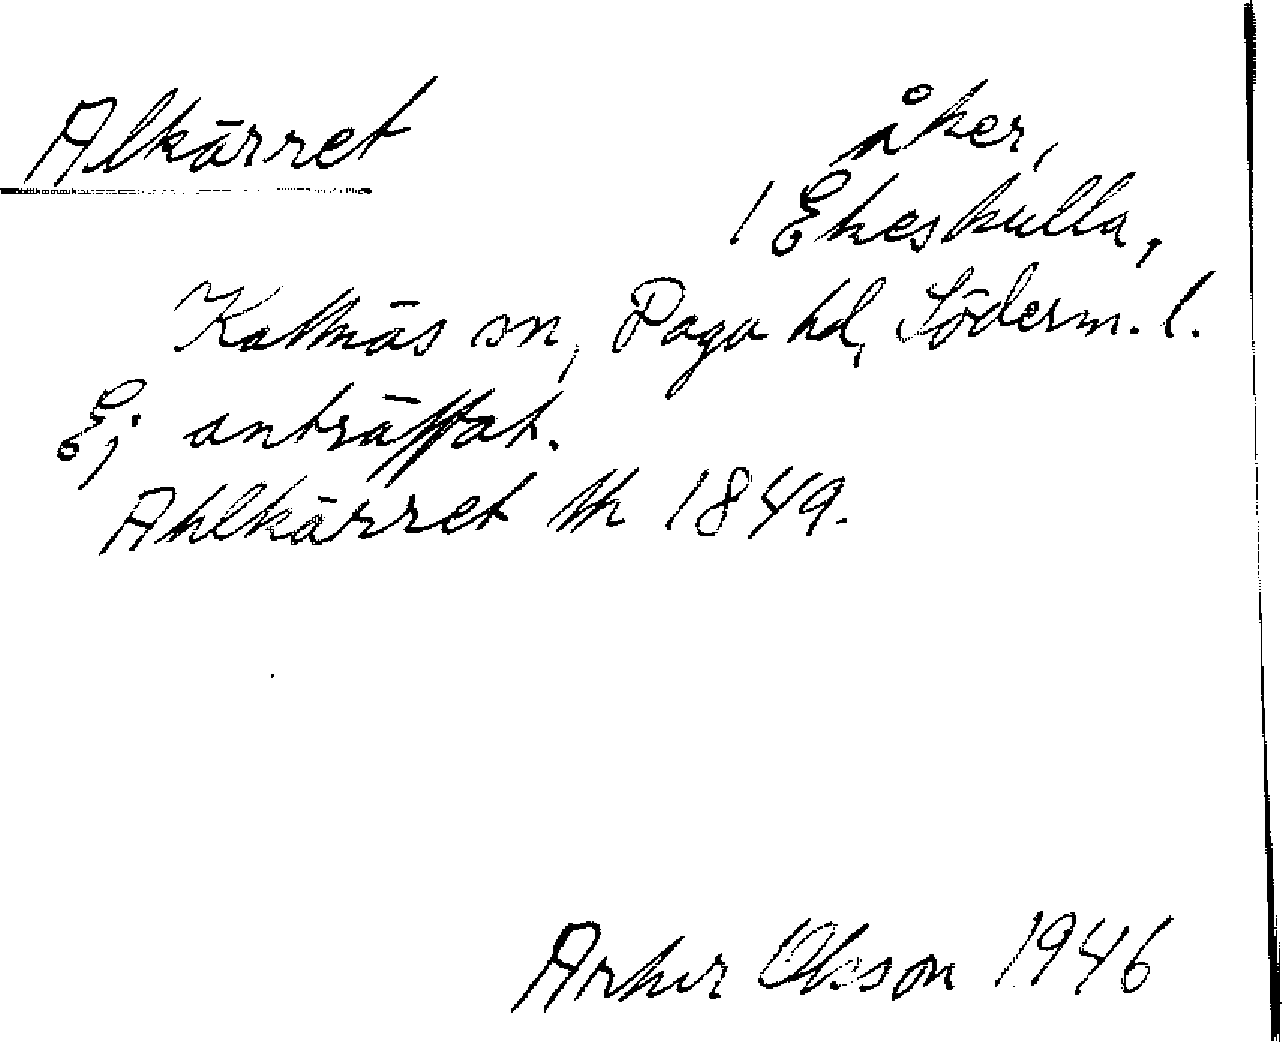 Alkärret
åker,
1 Ekeskulla,
Kattnäs sn, Daga hd, Söderm. l.
Ej anträffat.
Ahlkärret lk 1849.
Arthur Olsson 1946